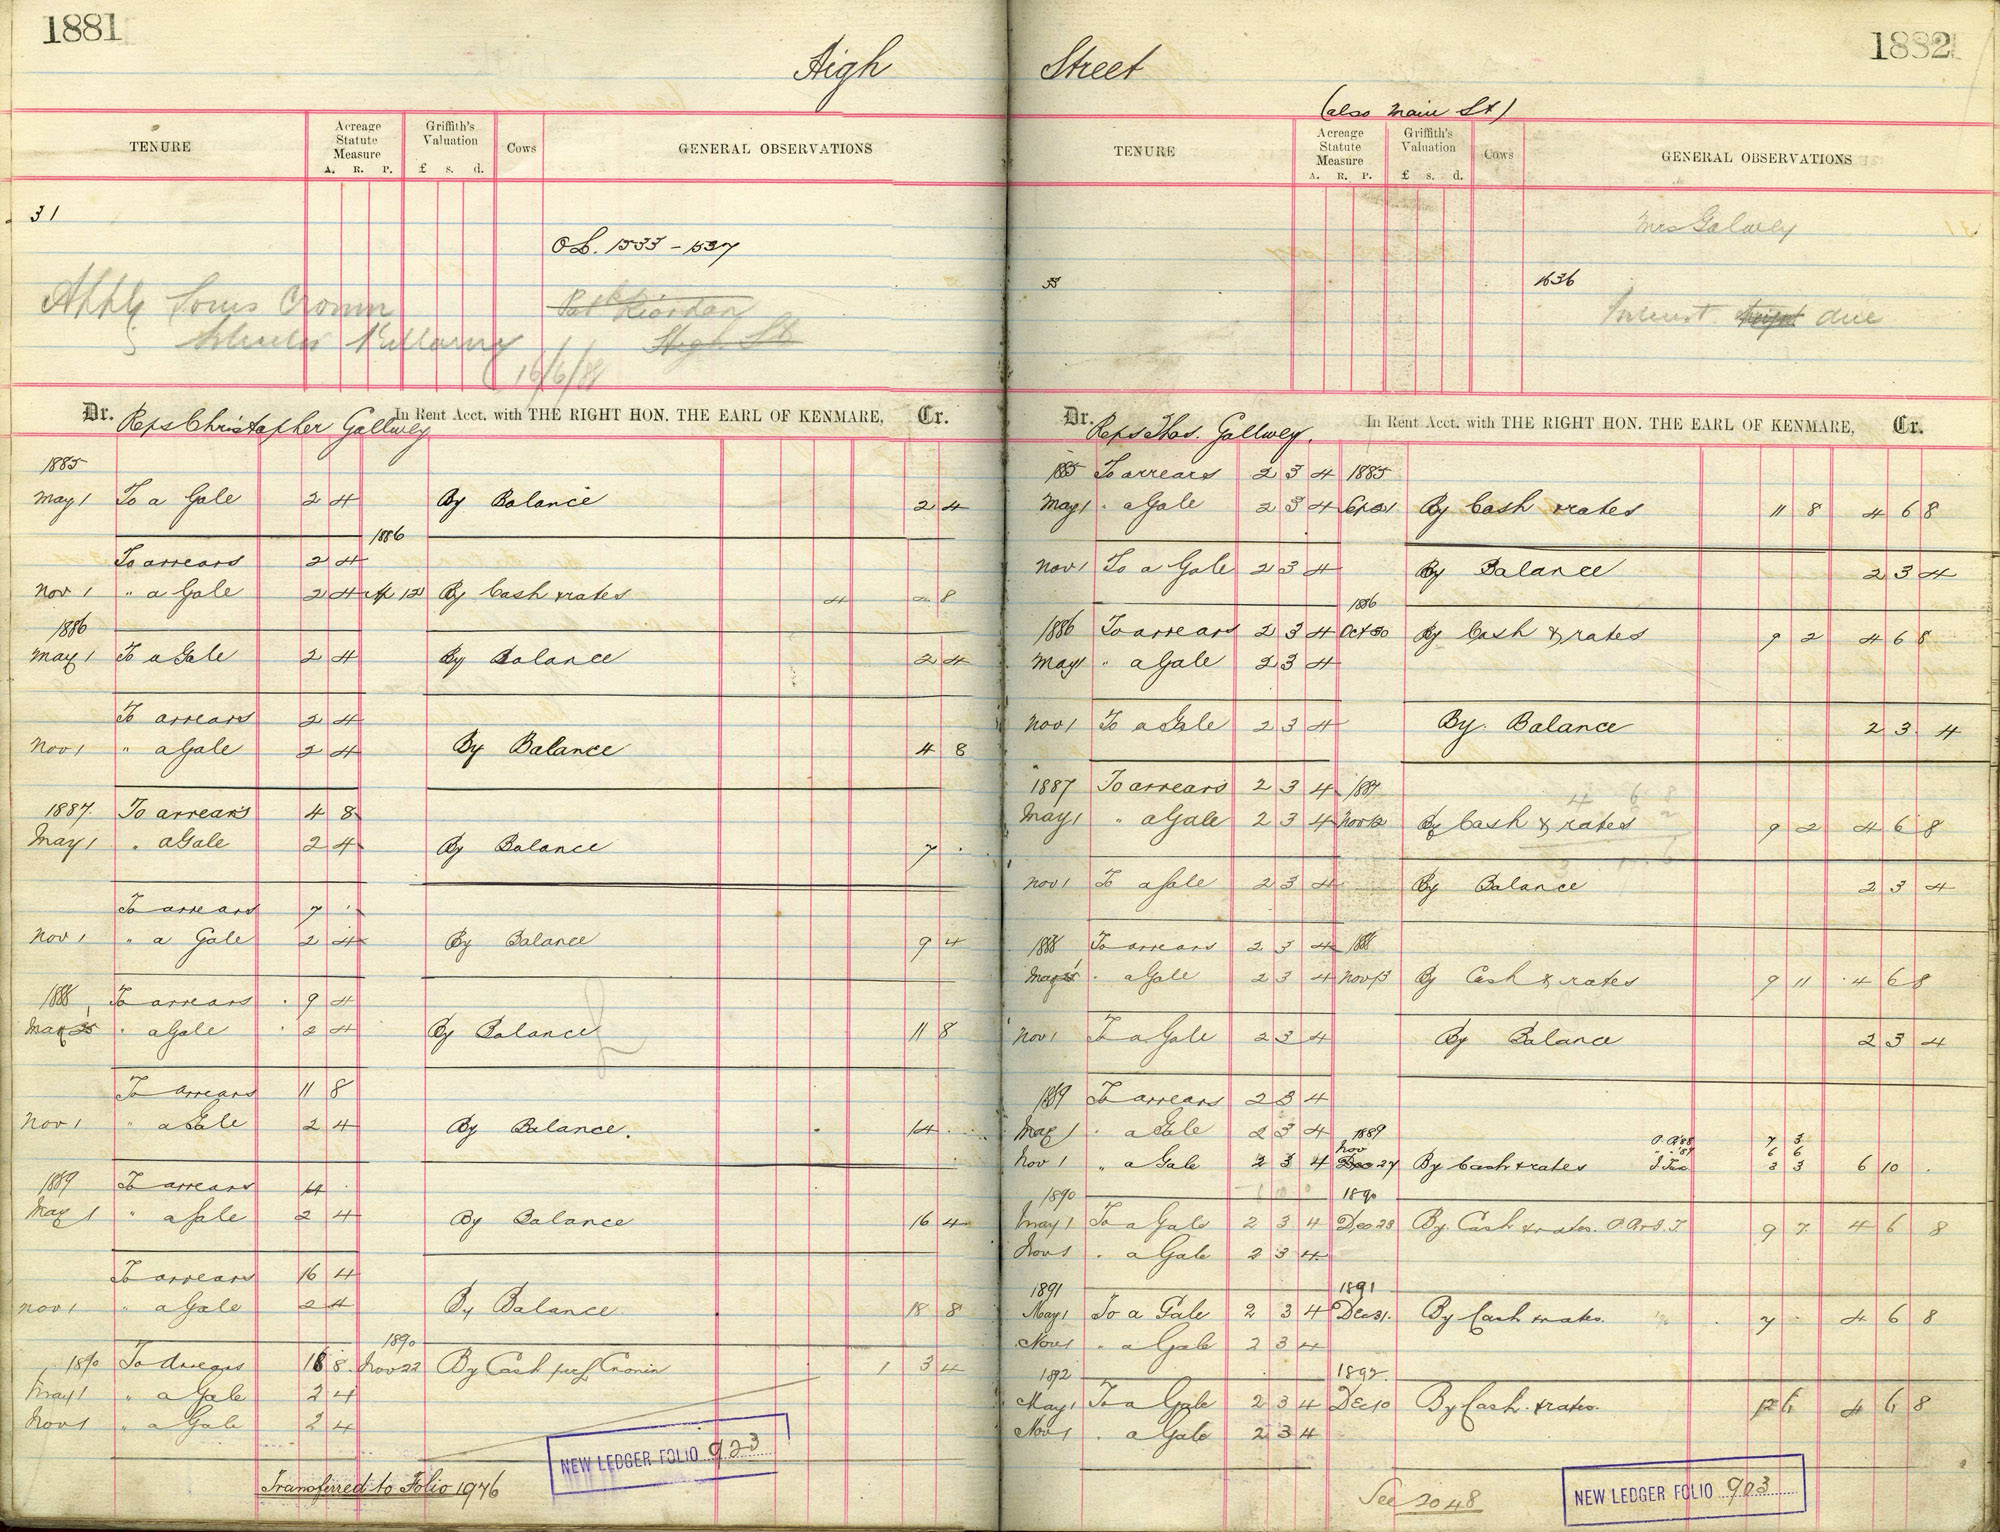 1881
High
TENURE
Acreage Statute Measure
A. R. P.
Griffith's Valuation
£ s. d.
Cows
GENERAL OBSERVATIONS
31
O L. 1533 - 1537
Apply Louis Cronin
Pat Riordan
Killarney
High St
16/6/88
Dr. Reps Christopher Gallwey In Rent Acct. with THE RIGHT HON. THE EARL OF KENMARE, Cr.
1885
May 1 To a Gale 2 4 By Balance 2 4
1886
To arrears 2 4
Nov 1 " a Gale 2 4 Ap 12 By Cash & rates 4 8
1886
May 1 To a Gale 2 4 By Balance 2 4
To arrears 2 4
Nov 1 " a Gale 2 4 By Balance 4 8
1887. To arrears 4 8
May 1 " a Gale 2 4 By Balance 7 .
To arrears 7 .
Nov 1 " a Gale 2 4 By Balance 9 4
1888 To arrears 9 4
May 1 " a Gale 2 4 By Balance 11 8
To arrears 11 8
Nov 1 " a Gale 2 4 By Balance. 14 .
1889 To arrears 14 .
May 1 " a Gale 2 4 By Balance 16 4
To arrears 16 4
Nov 1 " a Gale 2 4 By Balance 18 8
1890
1890 To arrears 18 8 Nov 22 By Cash per L Cronin 1 3 4
May 1 " a Gale 2 4
Nov 1 " a Gale 2 4
NEW LEDGER FOLIO 923
Transferred to Folio 1976
1882
Street
(also Main St)
TENURE
Acreage Statute Measure
A. R. P.
Griffith's Valuation
£ s. d.
Cows
GENERAL OBSERVATIONS
Mrs Galwey
1636
due
Dr. Reps Thos. Gallwey. In Rent Acct. with THE RIGHT HON. THE EARL OF KENMARE, Cr.
1885 To arrears 2 3 4 1885
May 1 " a Gale 2 3 4 By Cash & rates 11 8 4 6 8
Nov 1 To a Gale 2 3 4 By Balance 2 3 4
1886
1886 To arrears 2 3 4 Oct 30 By Cash & rates 9 2 4 6 8
May 1 " a Gale 2 3 4
Nov 1 To a Gale 2 3 4 By Balance 2 3 4
1887 To arrears 2 3 4 1887
May 1 " a Gale 2 3 4 Nov 12 By Cash & rates 9 2 4 6 8
Nov 1 To a Gale 2 3 4 By Balance 2 3 4
1888 To arrears 2 3 4 1888
May 1 " a Gale 2 3 4 Nov 13 By Cash & rates 9 11 4 6 8
Nov 1 To a Gale 2 3 4 By Balance 2 3 4
1889 To arrears 2 3 4
May 1 " a Gale 2 3 4 1889 7 3
Nov 1 " a Gale 2 3 4 Nov 27 By Cash & rates 6 6 3 3 6 10 .
1890 1890
May 1 To a Gale 2 3 4 Dec 23 By Cash & rates. 9 7 4 6 8
Nov 1 " a Gale 2 3 4
1891 1891
May 1 To a Gale 2 3 4 Dec 31. By Cash & rates. 7 . 4 6 8
Nov 1 " a Gale 2 3 4
1892 1892
May 1 To a Gale 2 3 4 Dec 10 By Cash. & rates. 12 6 4 6 8
Nov 1 " a Gale 2 3 4
See 2048
NEW LEDGER FOLIO 903